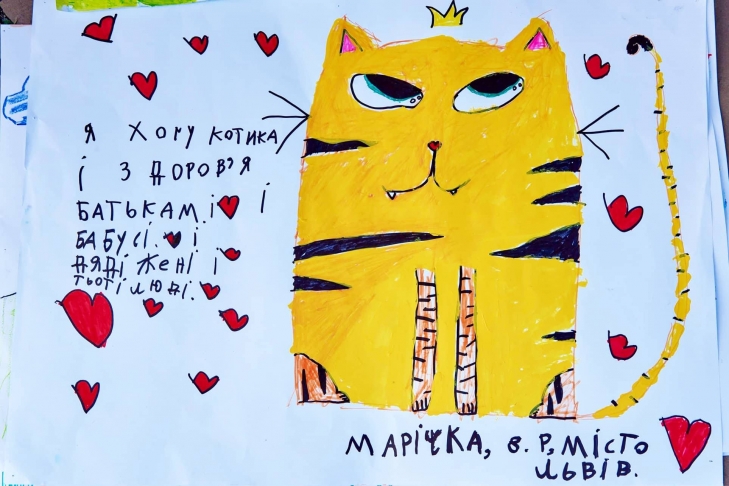 Я ХОЧУ КОТИКА
І ЗДОРОВ'Я
БАТЬКАМ.І І
БАБУСІ. І
ДЯДІ ЖЕНІ І
ТЬОТІ ЛЮДІ.
МАРІЧКА, 8. Р, МІСТО
ЛЬВІВ.